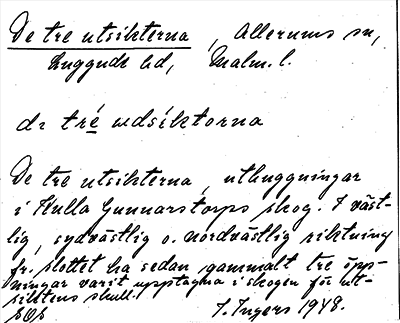 De tre utsikterna, Allerums sn,
Luggude hd, Malm. l.
di tré udsíktorna
De tre utsikterna, uthuggningar
i Kulla Gunnarstorps skog. I väst-
lig, sydvästlig o. nordvästlig riktning
fr. slottet ha sedan gammalt tre öpp-
ningar varit upptagna i skogen för ut-
siktens skull.
I. Ingers 1948.